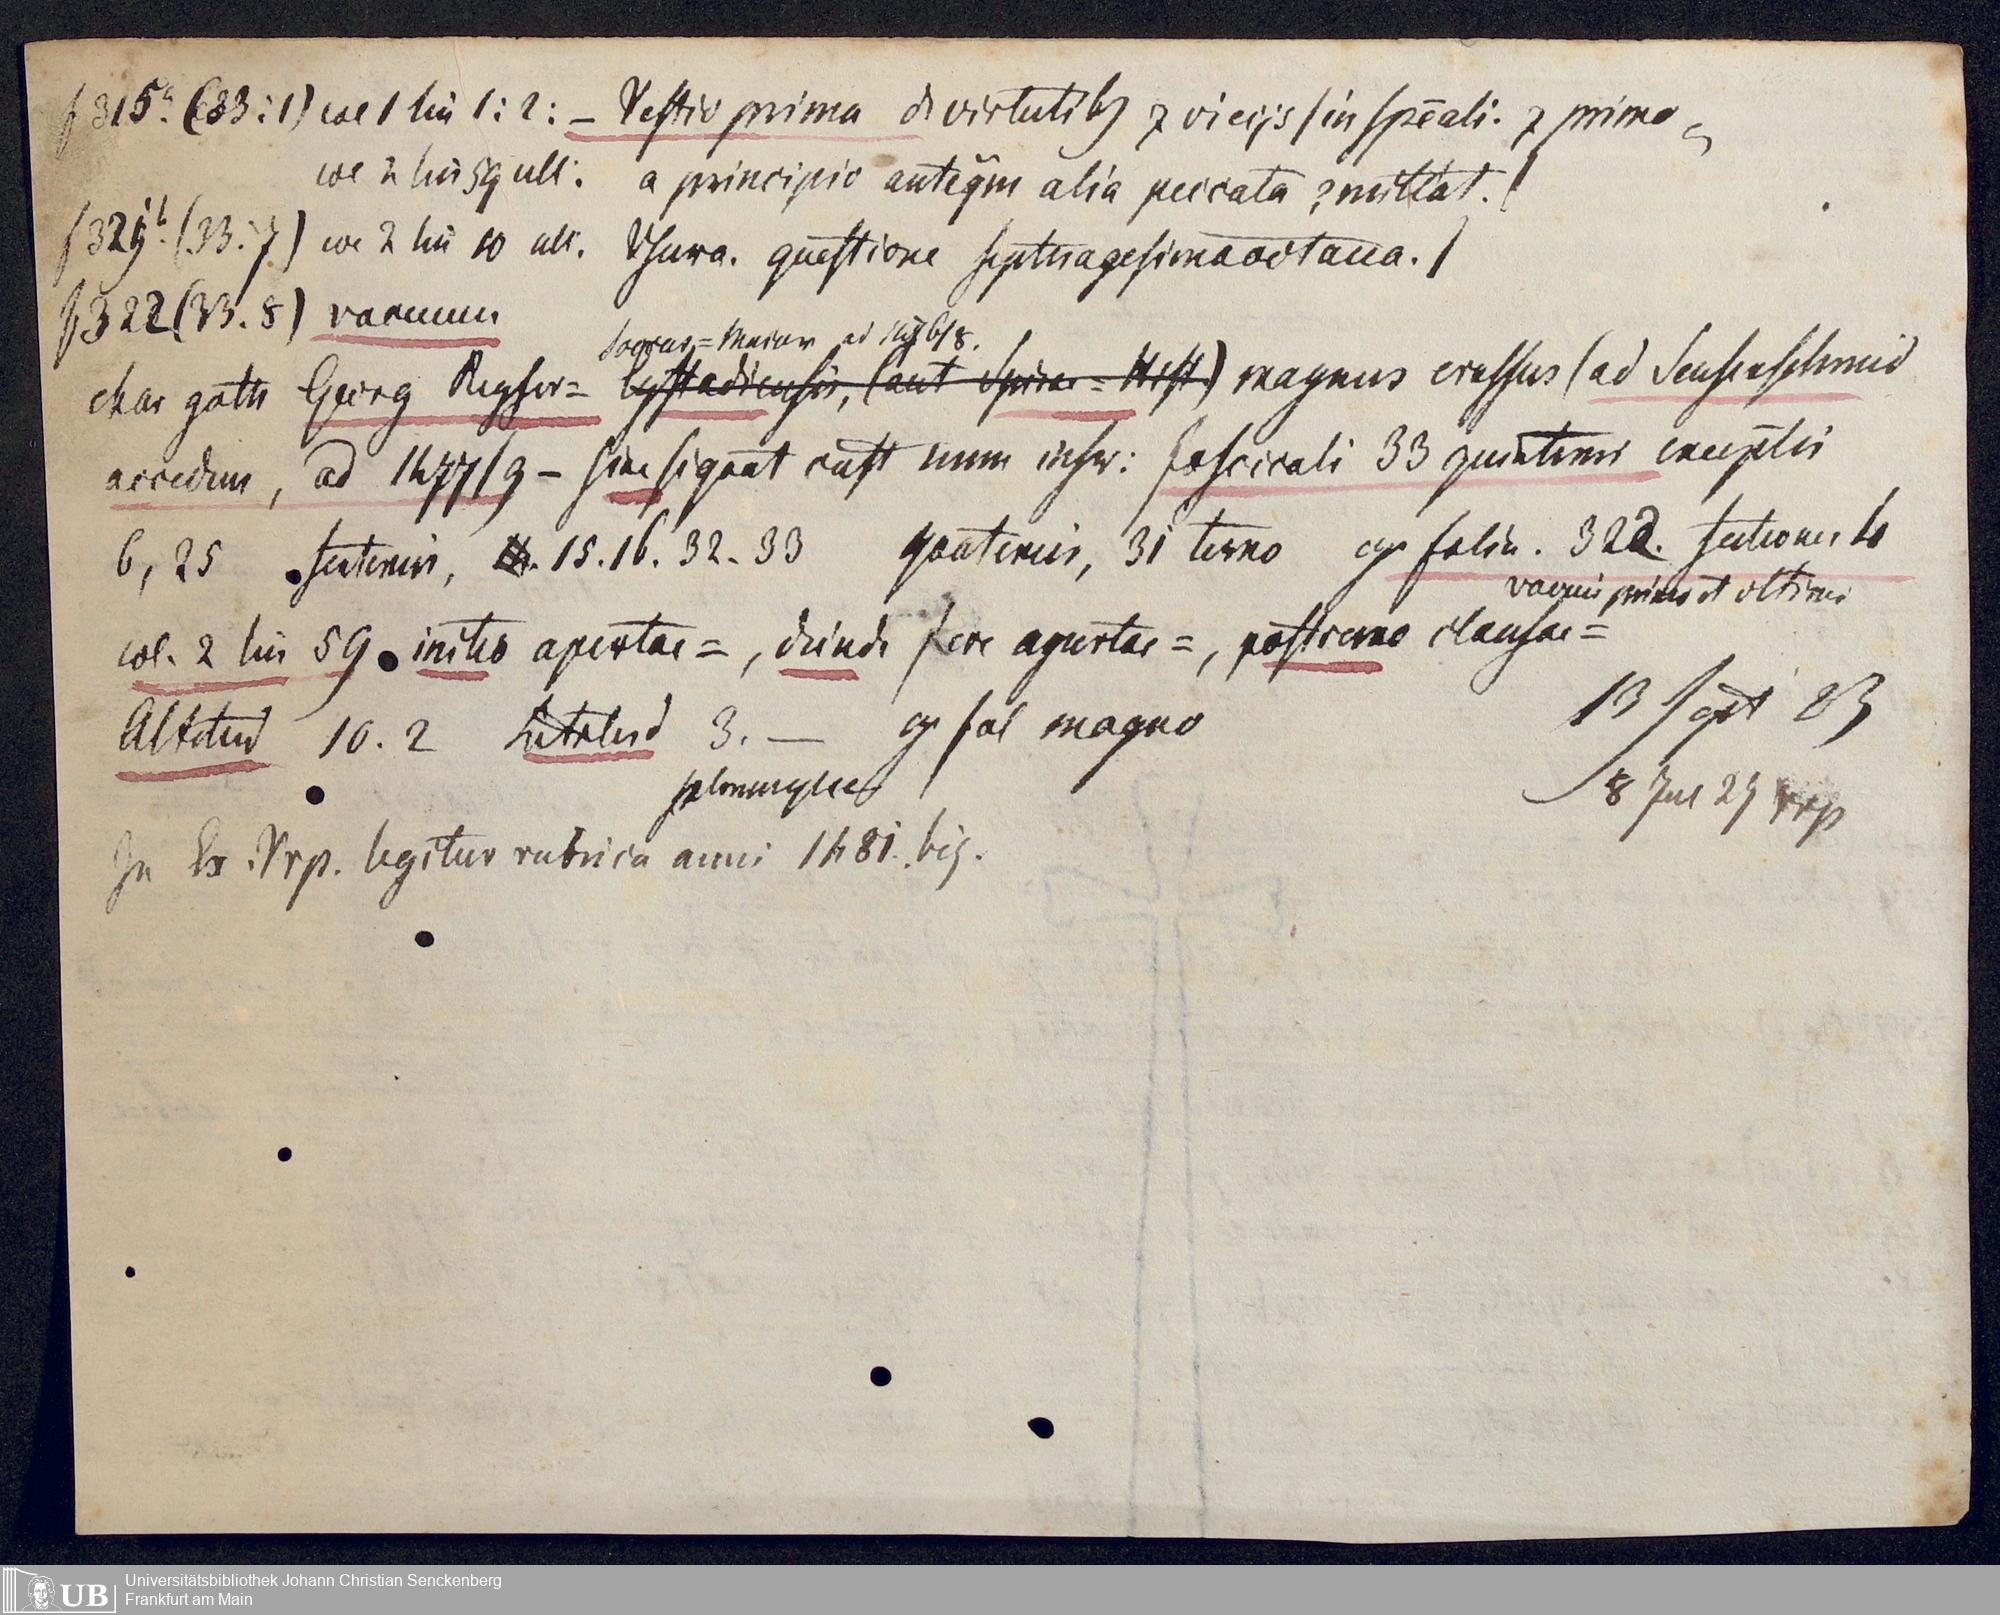 f 315a. (33:1) col 1 lin 1:2: – Vestio prima de virtutibꝫ ⁊ vicijs / in spēali. ⁊ primo
col 2 lin 59 ult. a principio anteq̄m alia peccata ꝯmittat. /
f 321b. (33:7) col 2 lin 10 ult. Vsura. questione septuagesimaoctaua. /
f 322 (33.8) vacuum
char goth Georg Reyser= magnus crassus (ad Sensenschmid
accedens, ad 1477/9 – sine signat cust num inscr: fascicali 33 quinterni exceptis
6, 25 sexternis, 15. 16. 32. 33 quaternis, 31 terno folia. 322. sectiones
vacuis primo et ultimo
col. 2 lin 59. initio apertae=, deinde fere apertae=, postremo clausae=
10. 2 3. — fol magno
13 Sept 83
8 Jul 24
In Ex legitur rubrica anni 1481. big.
UB
Universitätsbibliothek Johann Christian Senckenberg
Frankfurt am Main